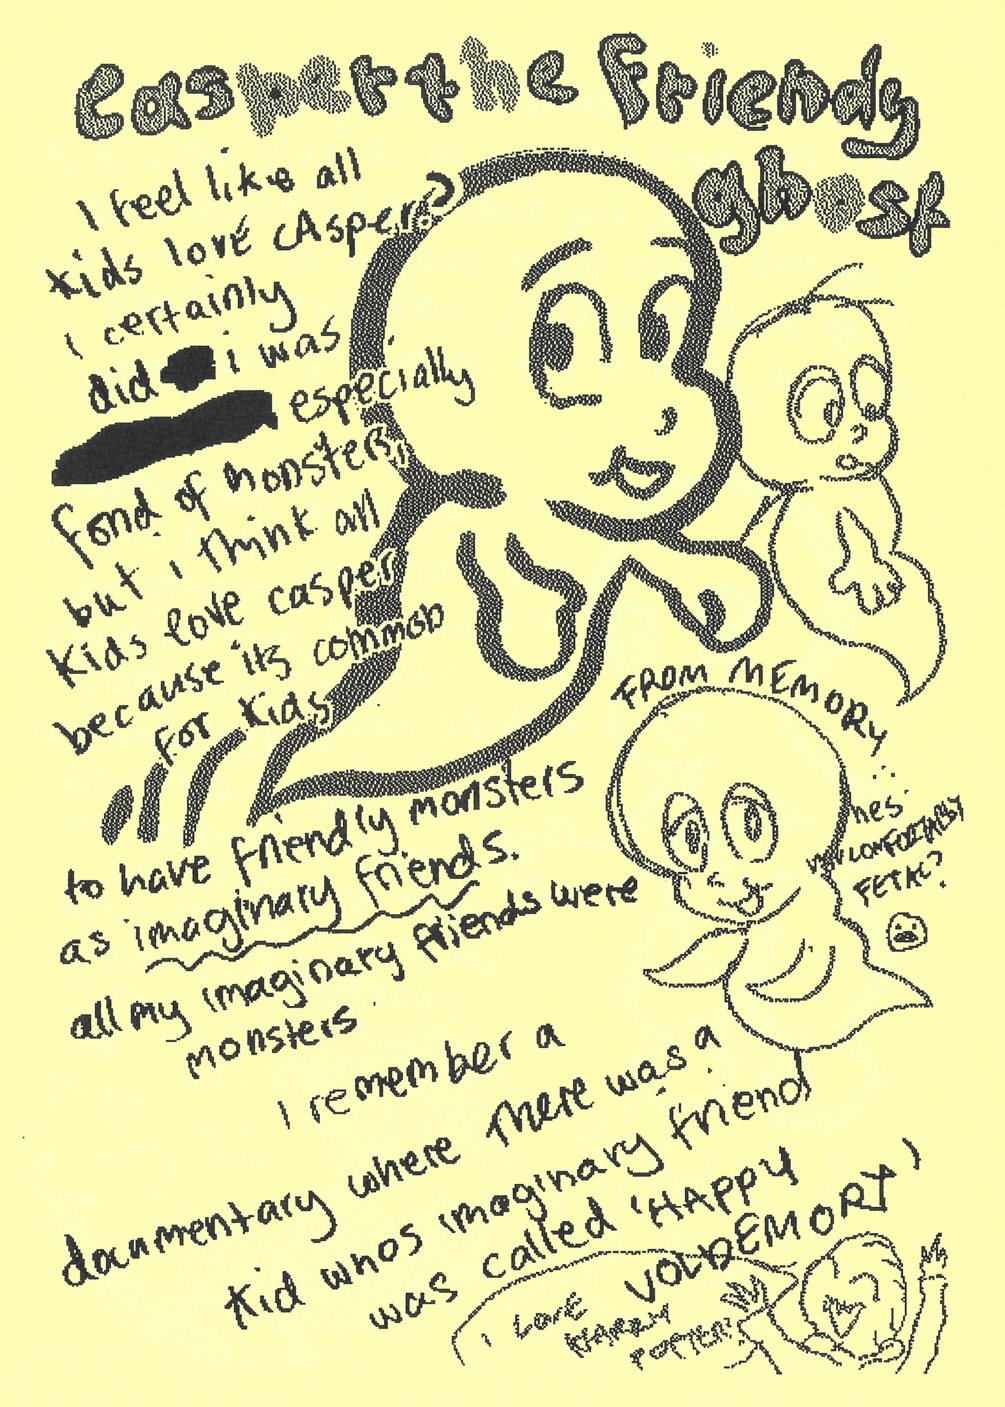 Casper the Friendy
ghost
I feel like all
kids love cAsper?
i certainly
did i was
especially
fond of monsters,
but i think all
kids love casper
because its common
for kids
to have friendly monsters
as imaginary friends.
all my imaginary friends were
monsters
FROM MEMORY
...
hes
UNCOMFORTABLY
FETAL?
I remember a
documentary where there was a
kid whos imaginary friend
was called 'HAPPY
VOLDEMORT'
I LOVE
HARRY
POTTER!